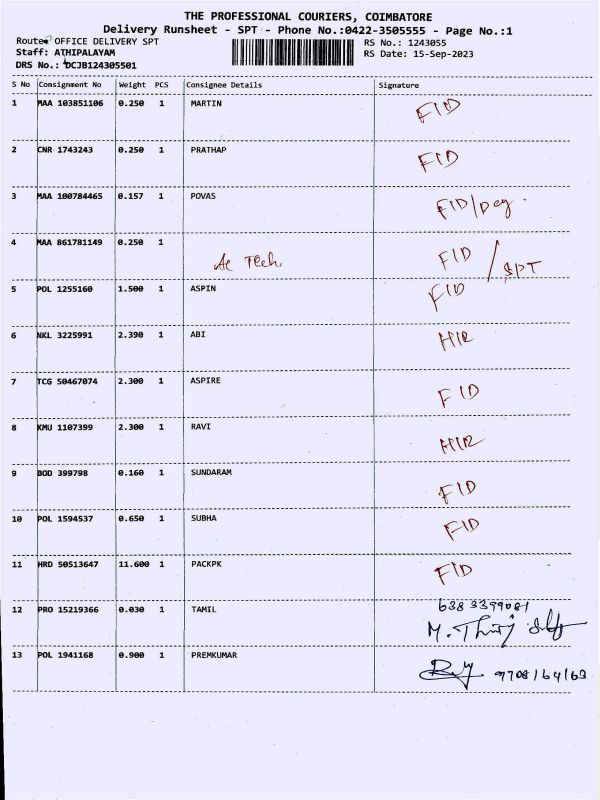 THE PROFESSIONAL COURIERS, COIMBATORE
Delivery Runsheet - SPT - Phone No.:0422-3505555 - Page No.:1
Route: OFFICE DELIVERY SPT
RS No.: 1243055
Staff: ATHIPALAYAM
RS Date: 15-Sep-2023
DRS No.: DCJB124305501
S No Consignment No Weight PCS Consignee Details Signature
1 MAA 103851106 0.250 1 MARTIN FID
2 CNR 1743243 0.250 1 PRATHAP FID
3 MAA 100784465 0.157 1 POVAS FID/Dey.
4 MAA 861781149 0.250 1 Ac Tech FID / SPT
5 POL 1255160 1.500 1 ASPIN FID
6 NKL 3225991 2.390 1 ABI HIR
7 TCG 50467074 2.300 1 ASPIRE FID
8 KMU 1107399 2.300 1 RAVI HIR
9 BOD 399798 0.160 1 SUNDARAM FID
10 POL 1594537 0.650 1 SUBHA FID
11 HRD 50513647 11.600 1 PACKPK FID
6383399081
12 PRO 15219366 0.030 1 TAMIL M.
13 POL 1941168 0.900 1 PREMKUMAR